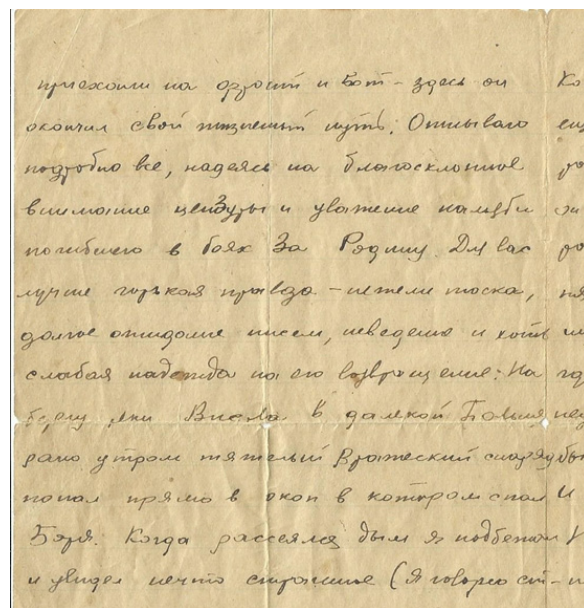 приехали на фронт и вот - здесь он Ко
окончил свой жизненный путь. Описываю ещ
подробно все, надеясь на благосклонное ро
внимание цензуры и уважение памяти
погибшего в боях За Родину. Для вас ро
лучше горькая правда - нежели тоска,
долгое ожидание писем, неведение и хоть
слабая надежда на его возвращение: На
берегу реки Висла в далекой Польше,
рано утром тяжелый вражеский снаряд бы
попал прямо в окоп в котором спал И
Боря. Когда рассеялся дым я подбежал
и увидел нечто страшное (Я говорю ст-